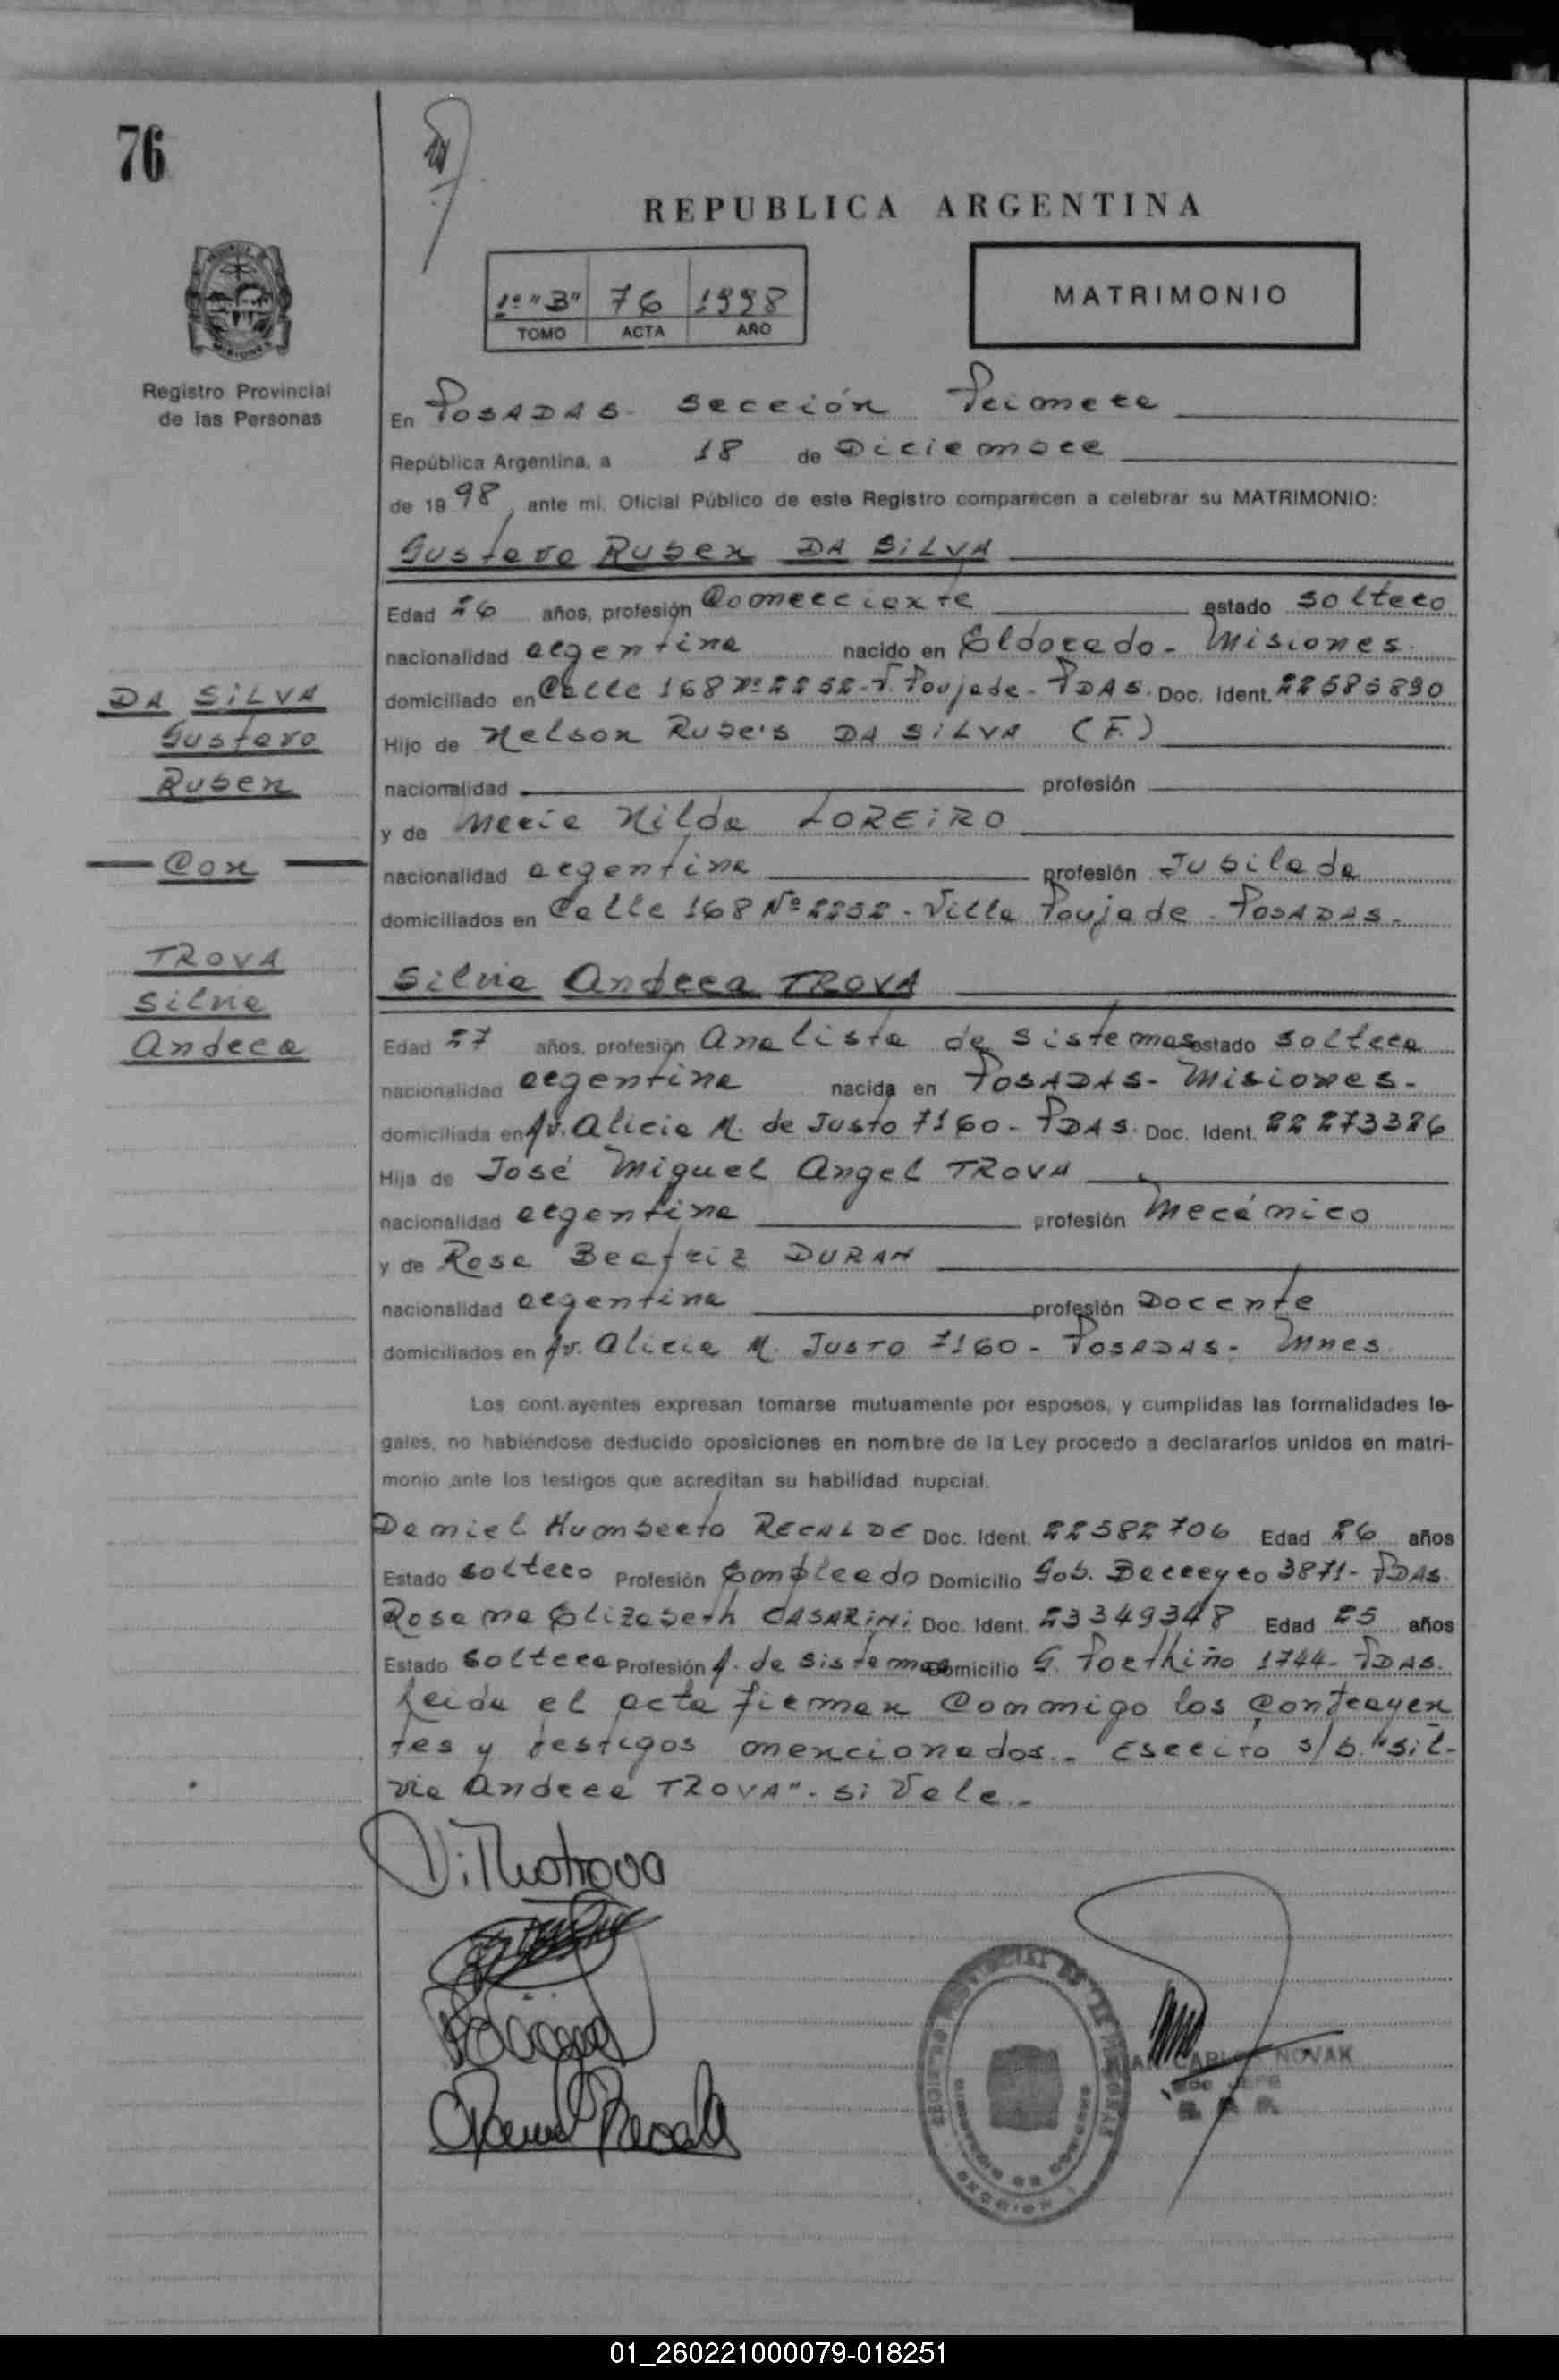 76
REPUBLICA ARGENTINA
1º "B" 76 1998
TOMO ACTA AÑO
MATRIMONIO
Registro Provincial
de las Personas
En POSADAS - Sección Primera
República Argentina, a 18 de Diciembre
de 1998, ante mi, Oficial Público de este Registro comparecen a celebrar su MATRIMONIO:
Gustavo Ruben DA SILVA
Edad 26 años, profesión Comerciante estado soltero
nacionalidad argentina nacido en Eldorado - Misiones.
domiciliado en Calle 168 Nº 2252 - V. Poujade - PDAS. Doc. Ident. 22585890
Hijo de Nelson Rube's DA SILVA (F.)
nacionalidad profesión
y de Maria Nilda LOREIRO
nacionalidad argentina profesión Jubilada
domiciliados en Calle 168 Nº 2252 - Villa Poujade - POSADAS.
Silvia Andrea TROVA
Edad 27 años, profesión Analista de Sistemas estado soltera
nacionalidad argentina nacida en POSADAS - Misiones -
domiciliada en Av. Alicia M. de Justo 7160 - PDAS. Doc. Ident. 22273326
Hija de José Miguel Angel TROVA
nacionalidad argentina profesión Mecánico
y de Rosa Beatriz DURAN
nacionalidad argentina profesión Docente
domiciliados en Av. Alicia M. JUSTO 7160 - POSADAS - Mnes
Los cont.ayentes expresan tomarse mutuamente por esposos, y cumplidas las formalidades le-
gales, no habiéndose deducido oposiciones en nombre de la Ley procedo a declararlos unidos en matri-
monio ante los testigos que acreditan su habilidad nupcial.
Daniel Humberto RECALDE Doc. Ident. 22582706 Edad 26 años
Estado soltero Profesión Empleado Domicilio Gob. Barreyro 3871 - PDAS.
Rosa na Elizabeth CASARINI Doc. Ident. 23349348 Edad 25 años
Estado soltera Profesión A. de Sistemas Domicilio G. Poethiño 1744 - PDAS.
Leida el acta firman conmigo los contrayen
tes y testigos mencionados - Escrito s/b. "Sil-
via Andrea TROVA" - Si Vale -
DA SILVA
Gustavo
Ruben
Con
TROVA
Silvia
Andrea
CARLOS NOVAK
JEFE
01_260221000079-018251